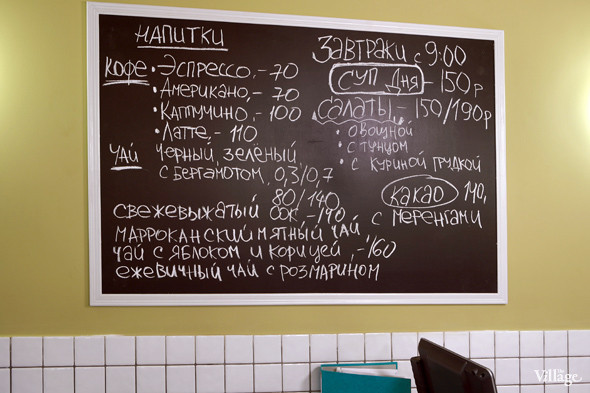 НАПИТКИ
КОФЕ • ЭСПРЕССО, - 70
• АМЕРИКАНО, - 70
• КАППУЧИНО, - 100
• ЛАТТЕ, - 110
ЧАЙ ЧЕРНЫЙ, ЗЕЛЁНЫЙ,
С БЕРГАМОТОМ, 0,3/0,7
80/140,
СВЕЖЕВЫЖАТЫЙ СОК, - 190
МАРРОКАНСКИЙ МЯТНЫЙ ЧАЙ
ЧАЙ С ЯБЛОКОМ И КОРИЦЕЙ, - 160
ЕЖЕВИЧНЫЙ ЧАЙ С РОЗМАРИНОМ
ЗАВТРАКИ С 9:00
СУП ДНЯ - 150 Р
САЛАТЫ, - 150/190 Р
• ОВОЩНОЙ
• С ТУНЦОМ
• С КУРИНОЙ ГРУДКОЙ
КАКАО 140,
С МЕРЕНГАМИ
The Village